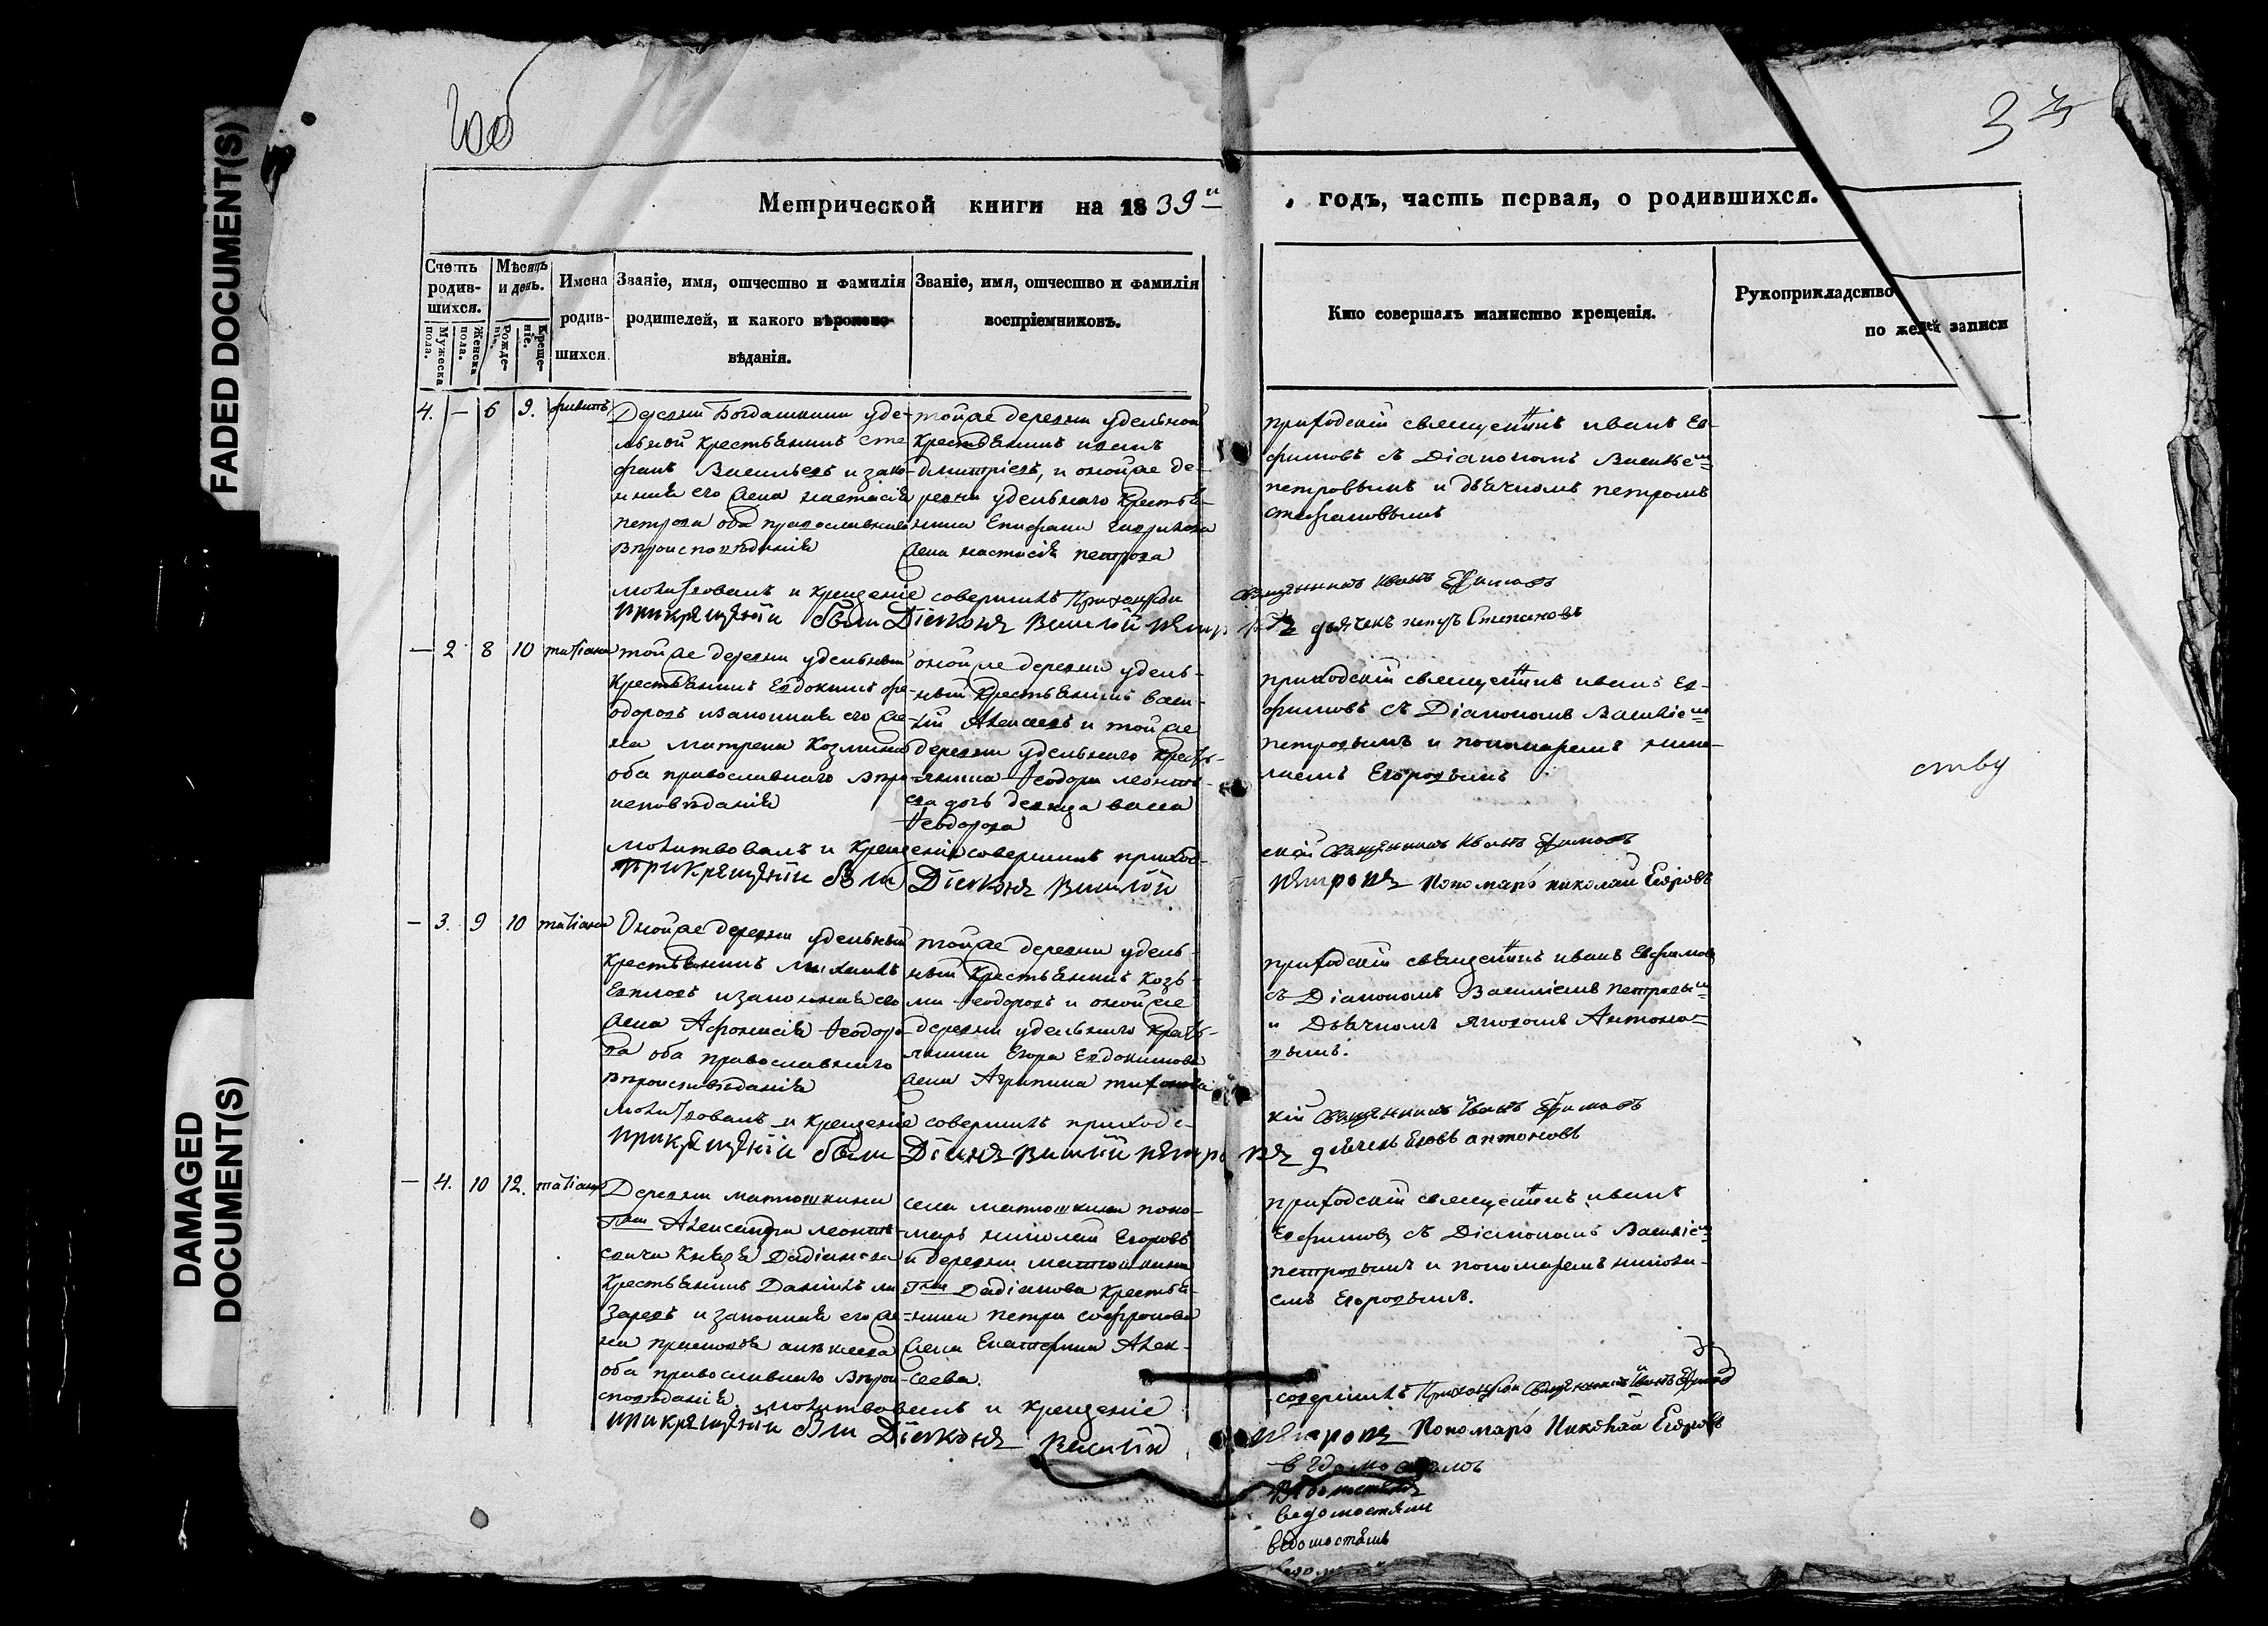 FADED DOCUMENT(S)
DAMAGED
DOCUMENT(S)
2об
3
Метрической книги на 1839 годъ, часть первая, о родившихся.
Счетъ родив-шихся.
Мужеска пола.
Женска пола.
Мѣсяцъ и день.
Рожде-нія.
Креще-ніе.
Имена родив-шихся.
Званіе, имя, отчество и фамилія родителей, и какого вѣроиспо-вѣданія.
Званіе, имя, отчество и фамилія воспріемниковъ.
Кто совершалъ таинство крещенія.
Рукоприкладство
по желей записи
4. — 6 9.
Деревни Богдашкини уде-
льной крестьянинъ Сте
фанъ Васильевъ и зако-
нная его жена настасія
петрова оба православнаго
вѣроисповѣданія
тойже деревни удельной
крестьянинъ иванъ
дмитріевъ, и онойже де-
ревни удельнаго крестья-
нина Епифана
жена настасія петрова
приходскій священникъ иванъ Ев-
фимовъ съ Діакономъ Василіем
петровымъ и дьячкомъ петромъ
стефановымъ
молитвовалъ и крещеніе совершилъ Приходскои
священникъ Иванъ Ефимовъ
прикрещеніи были Діаконъ Василій Петровъ дьячекъ петръ Степановъ
— 2 8 10 татіана
тойже деревни удельный
крестьянинъ Евдокимъ фе-
одоровъ изаконная его же-
на матрена Козмина
оба православнаго вѣро
исповѣданія
онойже деревни удель-
ный крестьянинъ васи-
лій Алексеевъ и тойже
деревни удельнаго кресть-
янина Ѳеодора леонтье-
ва дочь девица васса
Ѳеодорова
приходскій священникъ иванъ Ев-
фимовъ съ Діакономъ Василіем
петровымъ и пономаремъ нико-
лаемъ Егоровымъ
молитвовалъ и крещеніе совершилъ приход-
скій священникъ Иванъ Ефимовъ
прикрещеніи были Діаконъ Василій
Петровъ Пономарь николай Егоровъ
ству
— 3. 9 10 татіана
Онойже деревни удельный
крестьянинъ Михаилъ
Евтловъ изаконная его
жена Афонасія Ѳеодоро-
ва оба православнаго
вѣроисповѣданія
тойже деревни удель-
ный крестьянинъ Козь-
ма Ѳеодоровъ и онойже
деревни удельнаго кресть-
янина Егора Евдокимова
жена Агрипина тихонова
приходскій священникъ иванъ Евфимовъ
съ Діакономъ Василіемъ петровым
и Дьячкомъ Яковомъ Антоно-
вымъ.
молитвовалъ и крещеніе совершилъ приходс-
кій священникъ Иванъ Ефимовъ
прикрещеніи были Діаконъ Василій Петровъ дьячекъ Яковъ антоновъ
— 4. 10 12. татіана
Деревни матюшкини
Александра леонть-
евича Князя Дадіанова
крестьянинъ Даніилъ ла
заревъ изаконная его же-
на
оба православнаго вѣрои-
споведанія.
села матюшкина поно-
марь николай Егоровъ
и деревни матюшкина
Дадіанова крестья-
нина петра софронова
жена Екатерина Алек-
сеева.
приходскій священникъ иванъ
Евфимовъ съ Діакономъ Василіем
петровымъ и пономаремъ никола-
емъ Егоровымъ.
молитвовалъ и крещеніе
совершилъ Приходскои священникъ Иванъ Ефимовъ
прикрещеніи были Діаконъ Василій
Петровъ Пономарь Николай Егоровъ
ведомостямъ
ведомостямъ